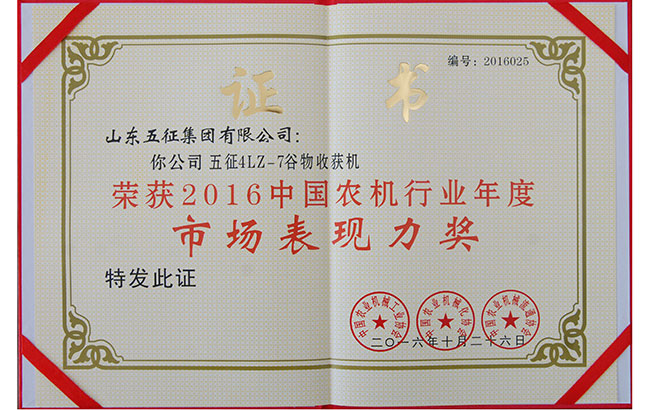 编号：2016025
证 书
山东五征集团有限公司：
你公司 五征4LZ-7谷物收获机
荣获2016中国农机行业年度
市场表现力奖
特发此证
中国农业机械工业协会
中国农业机械化协会
中国农业机械流通协会
二〇一六年十月二十六日